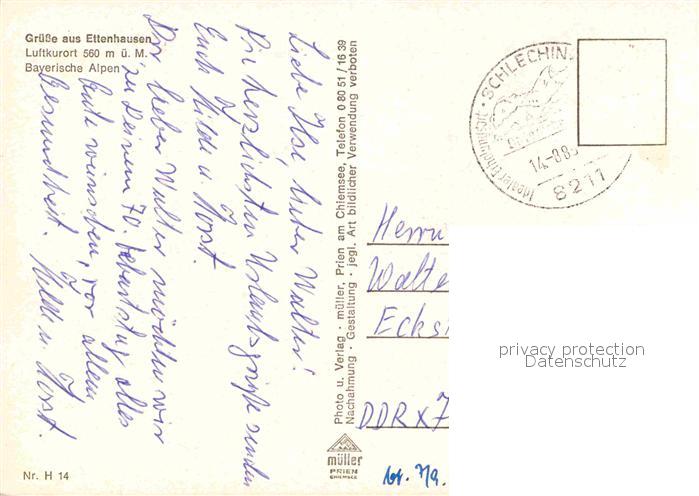 Grüße aus Ettenhausen
Luftkurort 560 m ü. M.
Bayerische Alpen
Liebe Ilse, lieber Walter!
Die herzlichsten Urlaubsgrüße senden
Euch Hilde u. Horst.
Dir lieber Walter möchten wir
zu Deinem 70. Geburtstag alles
Gute wünschen, vor allem
Gesundheit. Hilde u. Horst.
Nr. H 14
Photo u. Verlag · müller, Prien am Chiemsee, Telefon 0 80 51 / 16 39
Nachahmung · Gestaltung · jegl. Art bildlicher Verwendung verboten
müller
PRIEN
CHIEMSEE
· SCHLECHIN
14.-8.8
8211
Herrn
Walte
Ecks
DDR x 7
privacy protection
Datenschutz